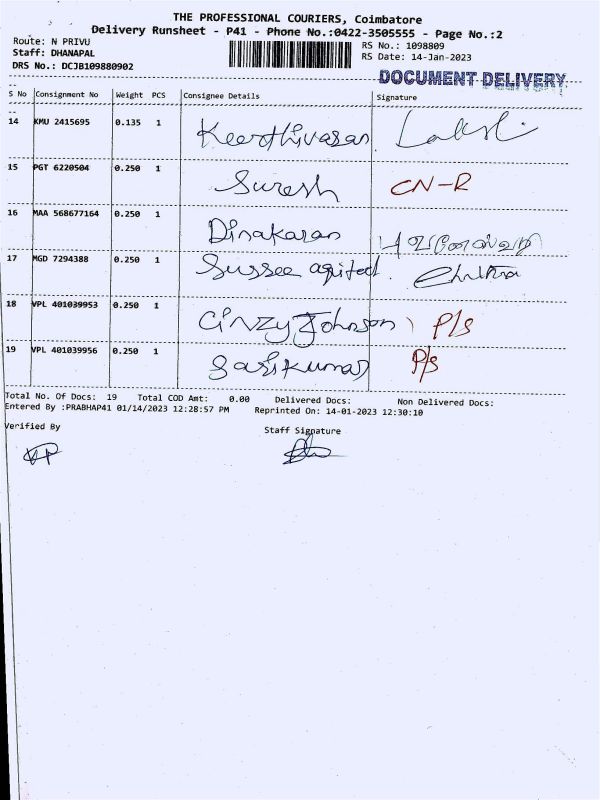 THE PROFESSIONAL COURIERS, Coimbatore
Delivery Runsheet - P41 - Phone No.:0422-3505555 - Page No.:2
Route: N PRIVU
Staff: DHANAPAL
DRS No.: DCJB109880902
RS No.: 1098809
RS Date: 14-Jan-2023
DOCUMENT DELIVERY
S No Consignment No Weight PCS Consignee Details Signature
14 KMU 2415695 0.135 1 Keerthivasan
15 PGT 6220504 0.250 1 Suresh CN-R
16 MAA 568677164 0.250 1 Dinakaran
17 MGD 7294388 0.250 1 Sussee Chitra
18 VPL 401039953 0.250 1 Cinzy Johnson P/s
19 VPL 401039956 0.250 1 Sasikumar P/s
Total No. Of Docs: 19 Total COD Amt: 0.00 Delivered Docs: Non Delivered Docs:
Entered By :PRABHAP41 01/14/2023 12:28:57 PM Reprinted On: 14-01-2023 12:30:10
Verified By Staff Signature